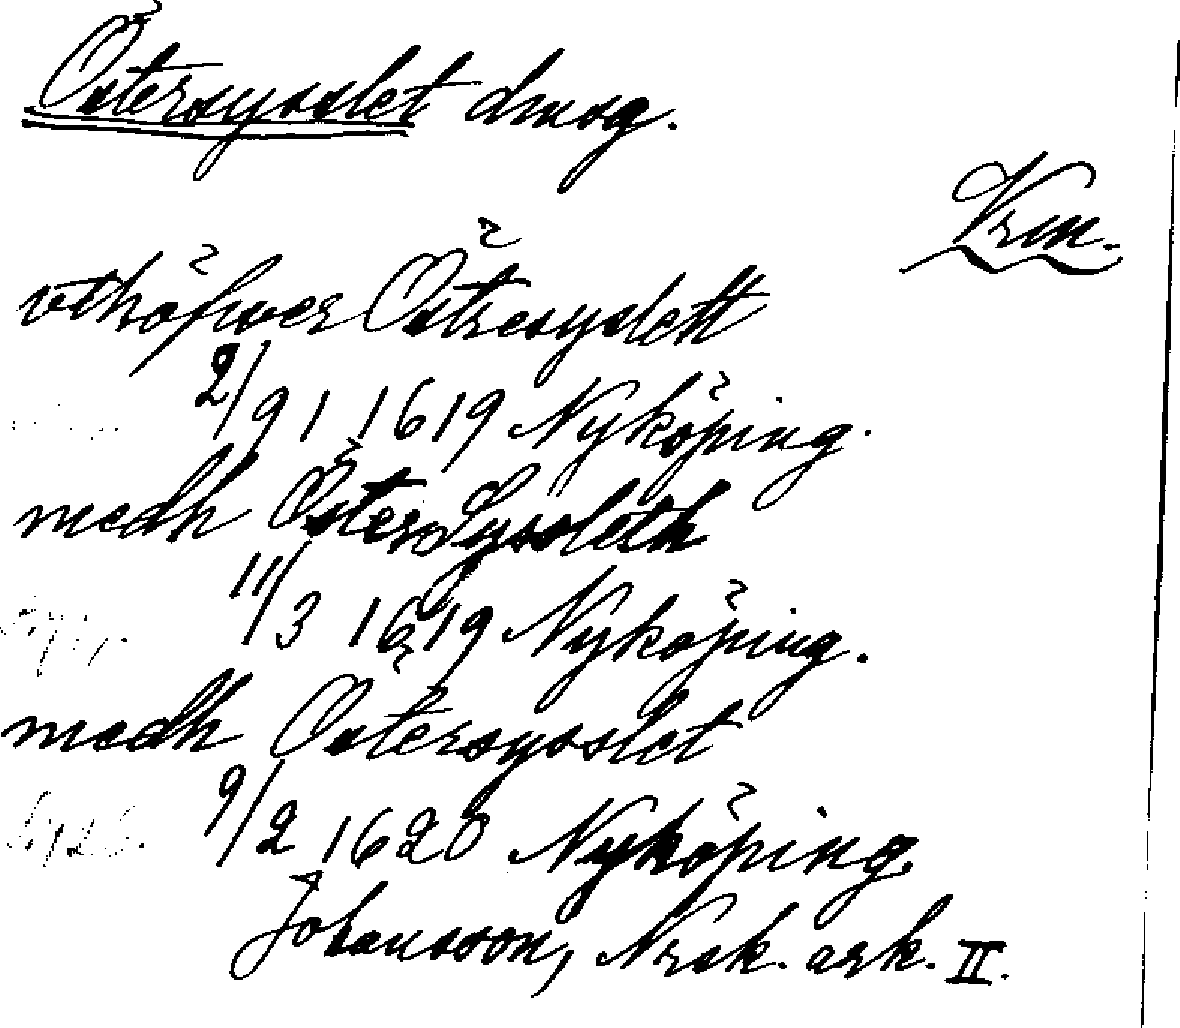 Östersysslet dmsg.
Vrm.
vthöfwer Östresyslett
2/91 1619 Nyköping.
medh Öster Syssleth
11/3 1619 Nyköping.
medh Östersysslet
9/2 1620 Nyköping.
Johansson, Nrsk. ark. II.